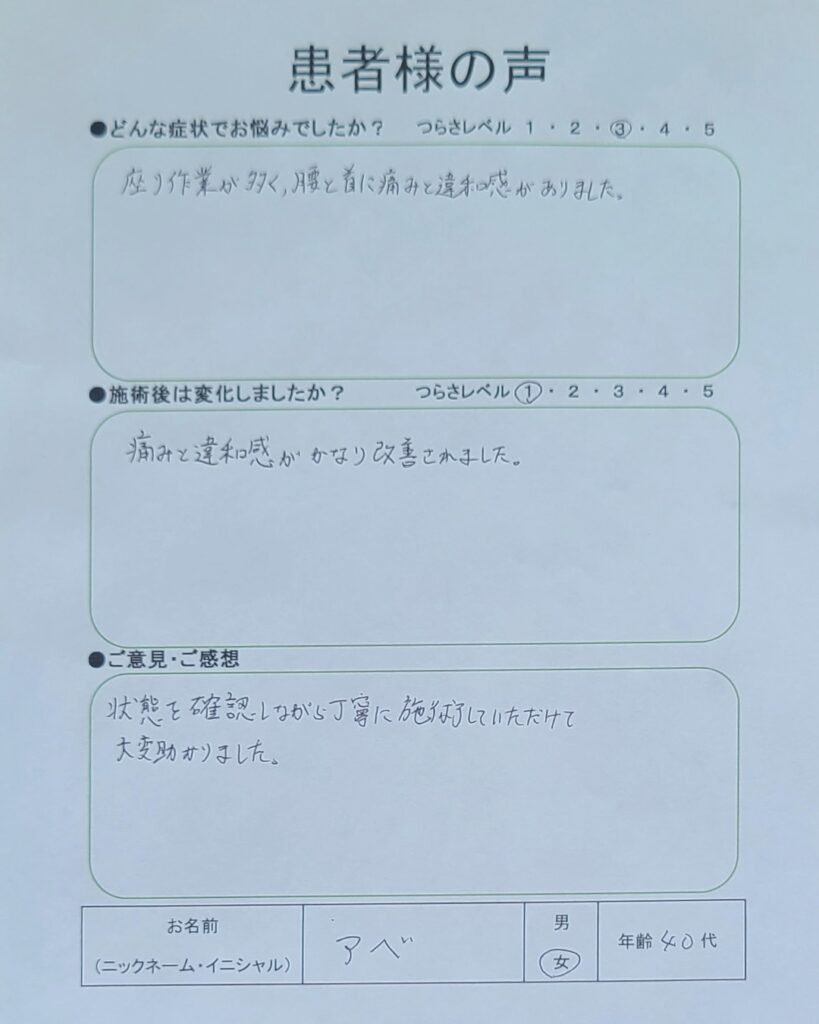 患者様の声
●どんな症状でお悩みでしたか？ つらさレベル 1 ・ 2 ・ ③ ・ 4 ・ 5
座り作業が多く、腰と首に痛みと違和感がありました。
●施術後は変化しましたか？ つらさレベル ① ・ 2 ・ 3 ・ 4 ・ 5
痛みと違和感がかなり改善されました。
●ご意見・ご感想
状態を確認しながら丁寧に施術していただけて
大変助かりました。
お名前
(ニックネーム・イニシャル)
アベ
男
女
年齢 40代